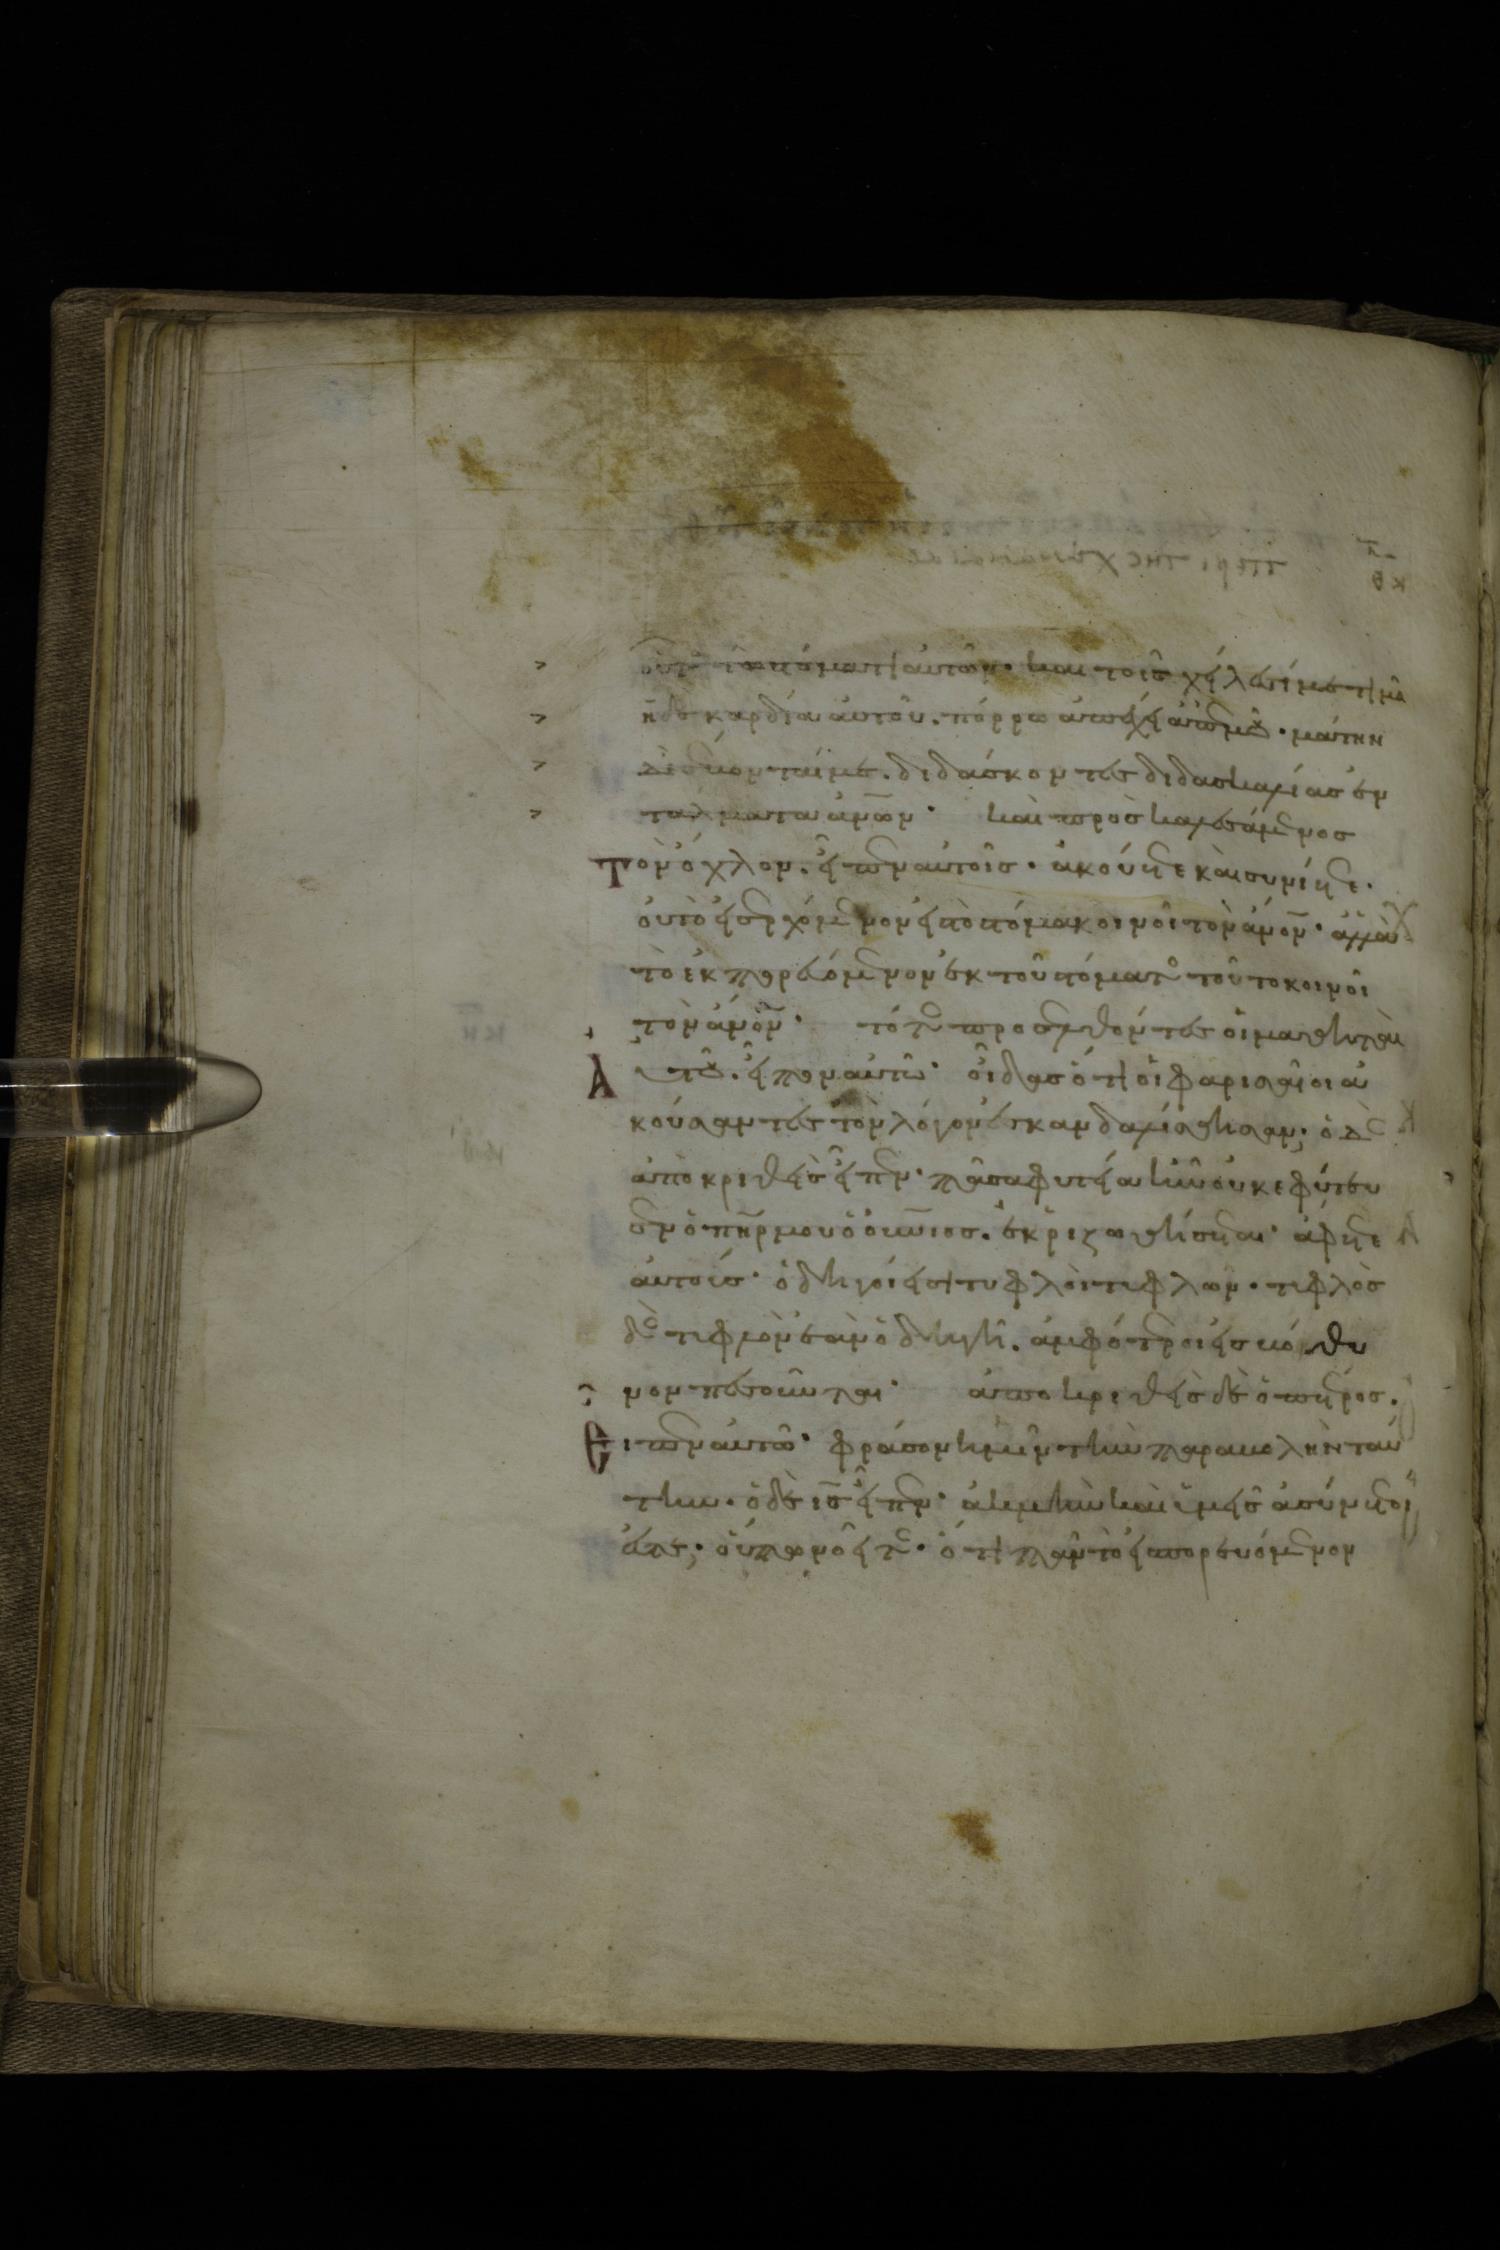 οὗτος τῷ στόματι αὐτῶν· καὶ τοῖς χείλεσί με τιμᾶ
ἡ δὲ καρδία αὐτῶν. πόρρω ἀπέχει ἀπ' ἐμοῦ· μάτην
δὲ σέβονταί με. διδάσκοντες διδασκαλίας ἐν
τάλματα ἀνων· καὶ προσκαλεσάμενος
τὸν ὄχλον. εἶπεν αὐτοῖς· ἀκούετε καὶ συνίετε·
οὐ τὸ εἰσερχόμενον εἰς τὸ στόμα κοινοῖ τὸν ἄνον· ἀλλὰ
τὸ ἐκπορευόμενον ἐκ τοῦ στόματος τοῦτο κοινοῖ
τὸν ἄνον· τότε προσελθόντες οἱ μαθηταὶ
Αὐτοῦ. εἶπον αὐτῷ· οἶδας ὅτι οἱ φαρισαῖοι ἀ
κούσαντες τὸν λόγον ἐσκανδαλίσθησαν; ὁ δὲ
ἀποκριθεὶς εἶπεν· πᾶσα φυτεία ἣν οὐκ ἐφύτευ
σεν ὁ πηρ μου ὁ οὐνιος. ἐκριζωθήσεται· ἄφετε
αὐτούς· ὁδηγοί εἰσι τυφλοὶ τυφλῶν· τυφλὸς
δὲ τυφλὸν ἐὰν ὁδηγῇ. ἀμφότεροι εἰς βόθυ
νον πεσοῦνται· ἀποκριθεὶς δὲ ὁ πέτρος.
Εἶπεν αὐτῷ· φράσον ἡμῖν τὴν παραβολὴν ταύ
την. ὁ δὲ ις εἶπεν· ἀκμὴν καὶ ὑμεῖς ἀσύνετοί
ἐστε; οὔπω νοεῖτε· ὅτι πᾶν τὸ εἰσπορευόμενον